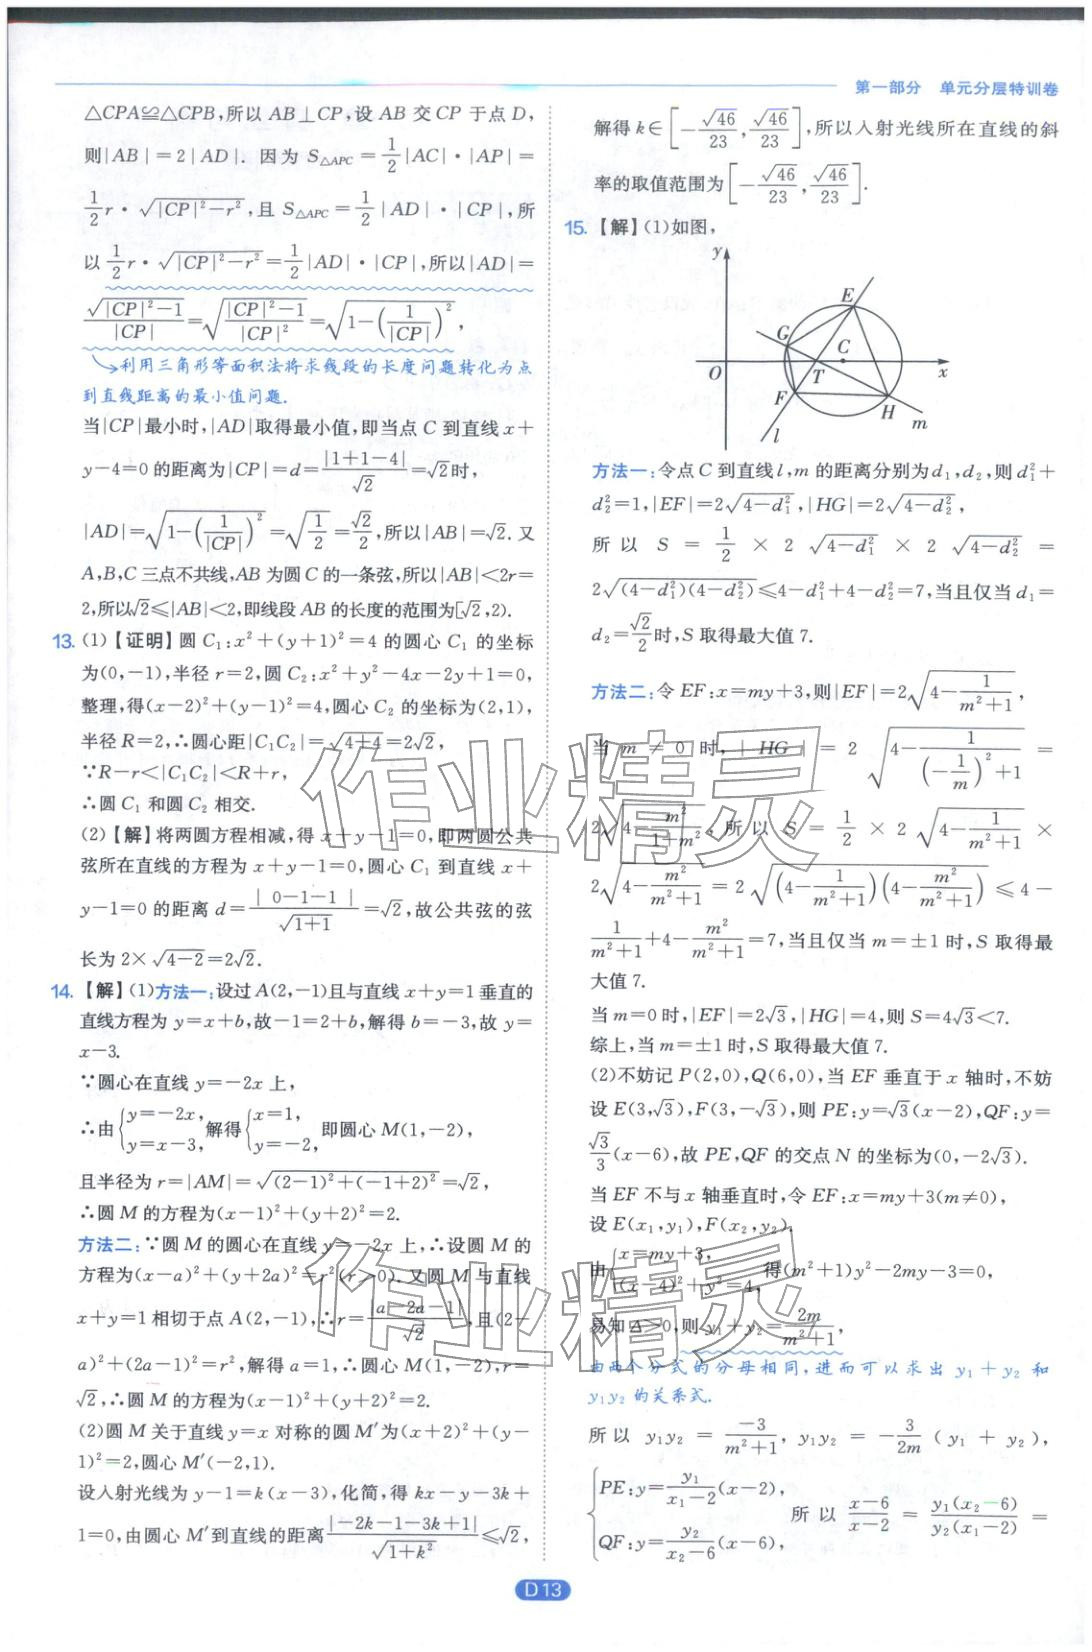 第一部分 单元分层特训卷
△CPA≌△CPB,所以 AB⊥CP,设 AB 交 CP 于点 D,
则|AB|=2|AD|. 因为 S△APC=1/2|AC|·|AP|=
1/2 r·√(|CP|²-r²),且 S△APC=1/2|AD|·|CP|,所
以 1/2 r·√(|CP|²-r²)=1/2|AD|·|CP|,所以|AD|=
√(|CP|²-1)/|CP|=√((|CP|²-1)/|CP|²)=√(1-(1/|CP|)²),
利用三角形等面积法将求线段的长度问题转化为点
到直线距离的最小值问题.
当|CP|最小时,|AD|取得最小值,即当点 C 到直线 x+
y-4=0 的距离为|CP|=d=|1+1-4|/√2=√2时,
|AD|=√(1-(1/|CP|)²)=√(1/2)=√2/2,所以|AB|=√2. 又
A,B,C 三点不共线,AB 为圆 C 的一条弦,所以|AB|<2r=
2,所以√2≤|AB|<2,即线段 AB 的长度的范围为[√2,2).
13. (1)【证明】圆 C₁:x²+(y+1)²=4 的圆心 C₁ 的坐标
为(0,-1),半径 r=2,圆 C₂:x²+y²-4x-2y+1=0,
整理,得(x-2)²+(y-1)²=4,圆心 C₂ 的坐标为(2,1),
半径 R=2,∴圆心距|C₁C₂|=√(4+4)=2√2,
∵R-r<|C₁C₂|<R+r,
∴圆 C₁ 和圆 C₂ 相交.
(2)【解】将两圆方程相减,得 x+y-1=0,即两圆公共
弦所在直线的方程为 x+y-1=0,圆心 C₁ 到直线 x+
y-1=0 的距离 d=|0-1-1|/√(1+1)=√2,故公共弦的弦
长为 2×√(4-2)=2√2.
14. 【解】(1)方法一:设过 A(2,-1)且与直线 x+y=1 垂直的
直线方程为 y=x+b,故-1=2+b,解得 b=-3,故 y=
x-3.
∵圆心在直线 y=-2x 上,
∴由{y=-2x, y=x-3,解得{x=1, y=-2,即圆心 M(1,-2),
且半径为 r=|AM|=√((2-1)²+(-1+2)²)=√2,
∴圆 M 的方程为(x-1)²+(y+2)²=2.
方法二:∵圆 M 的圆心在直线 y=-2x 上,∴设圆 M 的
方程为(x-a)²+(y+2a)²=r²(r>0). 又圆 M 与直线
x+y=1 相切于点 A(2,-1),∴r=|a-2a-1|/√2,且(2-
a)²+(2a-1)²=r²,解得 a=1,∴圆心 M(1,-2),r=
√2,∴圆 M 的方程为(x-1)²+(y+2)²=2.
(2)圆 M 关于直线 y=x 对称的圆 M′为(x+2)²+(y-
1)²=2,圆心 M′(-2,1).
设入射光线为 y-1=k(x-3),化简,得 kx-y-3k+
1=0,由圆心 M′到直线的距离|-2k-1-3k+1|/√(1+k²)≤√2,
解得 k∈[-√46/23,√46/23],所以入射光线所在直线的斜
率的取值范围为[-√46/23,√46/23].
15. 【解】(1)如图,
y
E
G
C
O
T
x
F
H
m
l
方法一:令点 C 到直线 l,m 的距离分别为 d₁,d₂,则 d₁²+
d₂²=1,|EF|=2√(4-d₁²),|HG|=2√(4-d₂²),
所以 S=1/2×2√(4-d₁²)×2√(4-d₂²)=
2√((4-d₁²)(4-d₂²))≤4-d₁²+4-d₂²=7,当且仅当 d₁=
d₂=√2/2时,S 取得最大值 7.
方法二:令 EF:x=my+3,则|EF|=2√(4-1/(m²+1)),
当 m≠0 时,|HG|=2√(4-1/((-1/m)²+1))=
2√(4-m²/(1+m²)),所以 S=1/2×2√(4-1/(m²+1))×
2√(4-m²/(m²+1))=2√((4-1/(m²+1))(4-m²/(m²+1)))≤4-
1/(m²+1)+4-m²/(m²+1)=7,当且仅当 m=±1 时,S 取得最
大值 7.
当 m=0 时,|EF|=2√3,|HG|=4,则 S=4√3<7.
综上,当 m=±1 时,S 取得最大值 7.
(2)不妨记 P(2,0),Q(6,0),当 EF 垂直于 x 轴时,不妨
设 E(3,√3),F(3,-√3),则 PE:y=√3(x-2),QF:y=
√3/3(x-6),故 PE,QF 的交点 N 的坐标为(0,-2√3).
当 EF 不与 x 轴垂直时,令 EF:x=my+3(m≠0),
设 E(x₁,y₁),F(x₂,y₂),
由{x=my+3, (x-4)²+y²=4,得(m²+1)y²-2my-3=0,
易知 Δ>0,则 y₁+y₂=2m/(m²+1),
由两个分式的分母相同,进而可以求出 y₁+y₂ 和
y₁y₂ 的关系式.
所以 y₁y₂=-3/(m²+1), y₁y₂=-3/2m(y₁+y₂),
{PE:y=y₁/(x₁-2)(x-2), QF:y=y₂/(x₂-6)(x-6), 所以 (x-6)/(x-2)=y₁(x₂-6)/y₂(x₁-2)=
D13
作业精灵
作业精灵